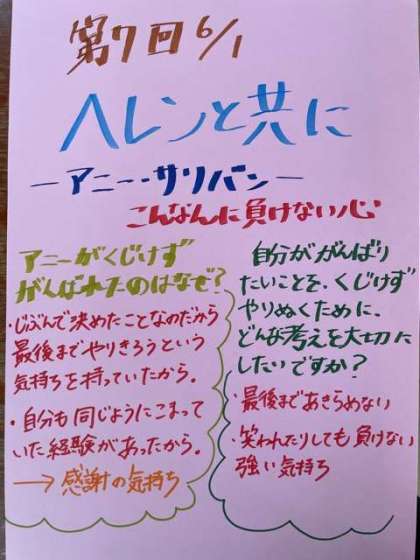 第7回 6/1
ヘレンと共に
―アニー・サリバン―
こんなんに負けない心
アニーがくじけず
がんばれたのはなぜ？
・じぶんで決めたことなのだから
最後までやりきろうという
気持ちを持っていたから。
・自分も同じようにこまって
いた経験があったから。
→感謝の気持ち
自分ががんばり
たいことを、くじけず
やりぬくために、
どんな考えを大切に
したいですか？
・最後まであきらめない
・笑われたりしても負けない
強い気持ち